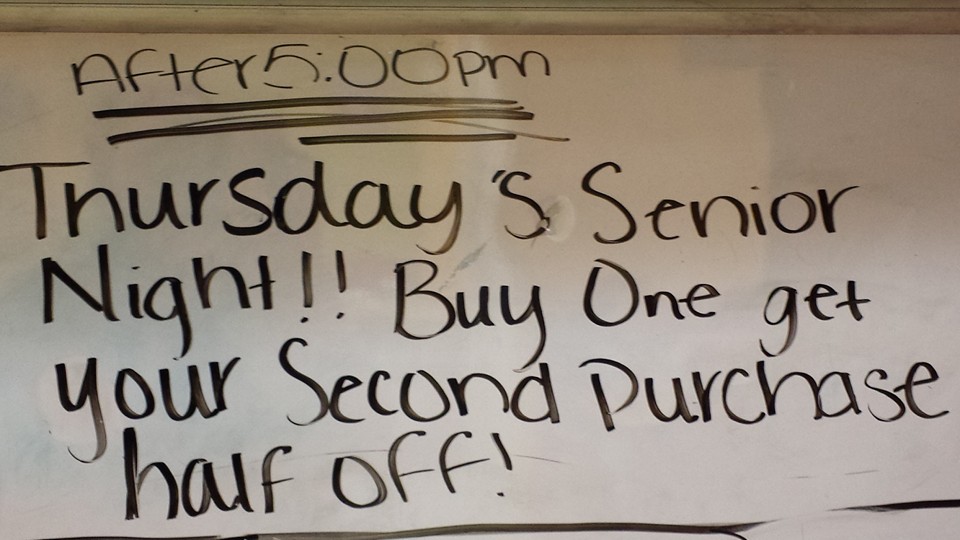 After 5:00pm
Thursday's Senior
Night!! Buy One get
your Second Purchase
half off!